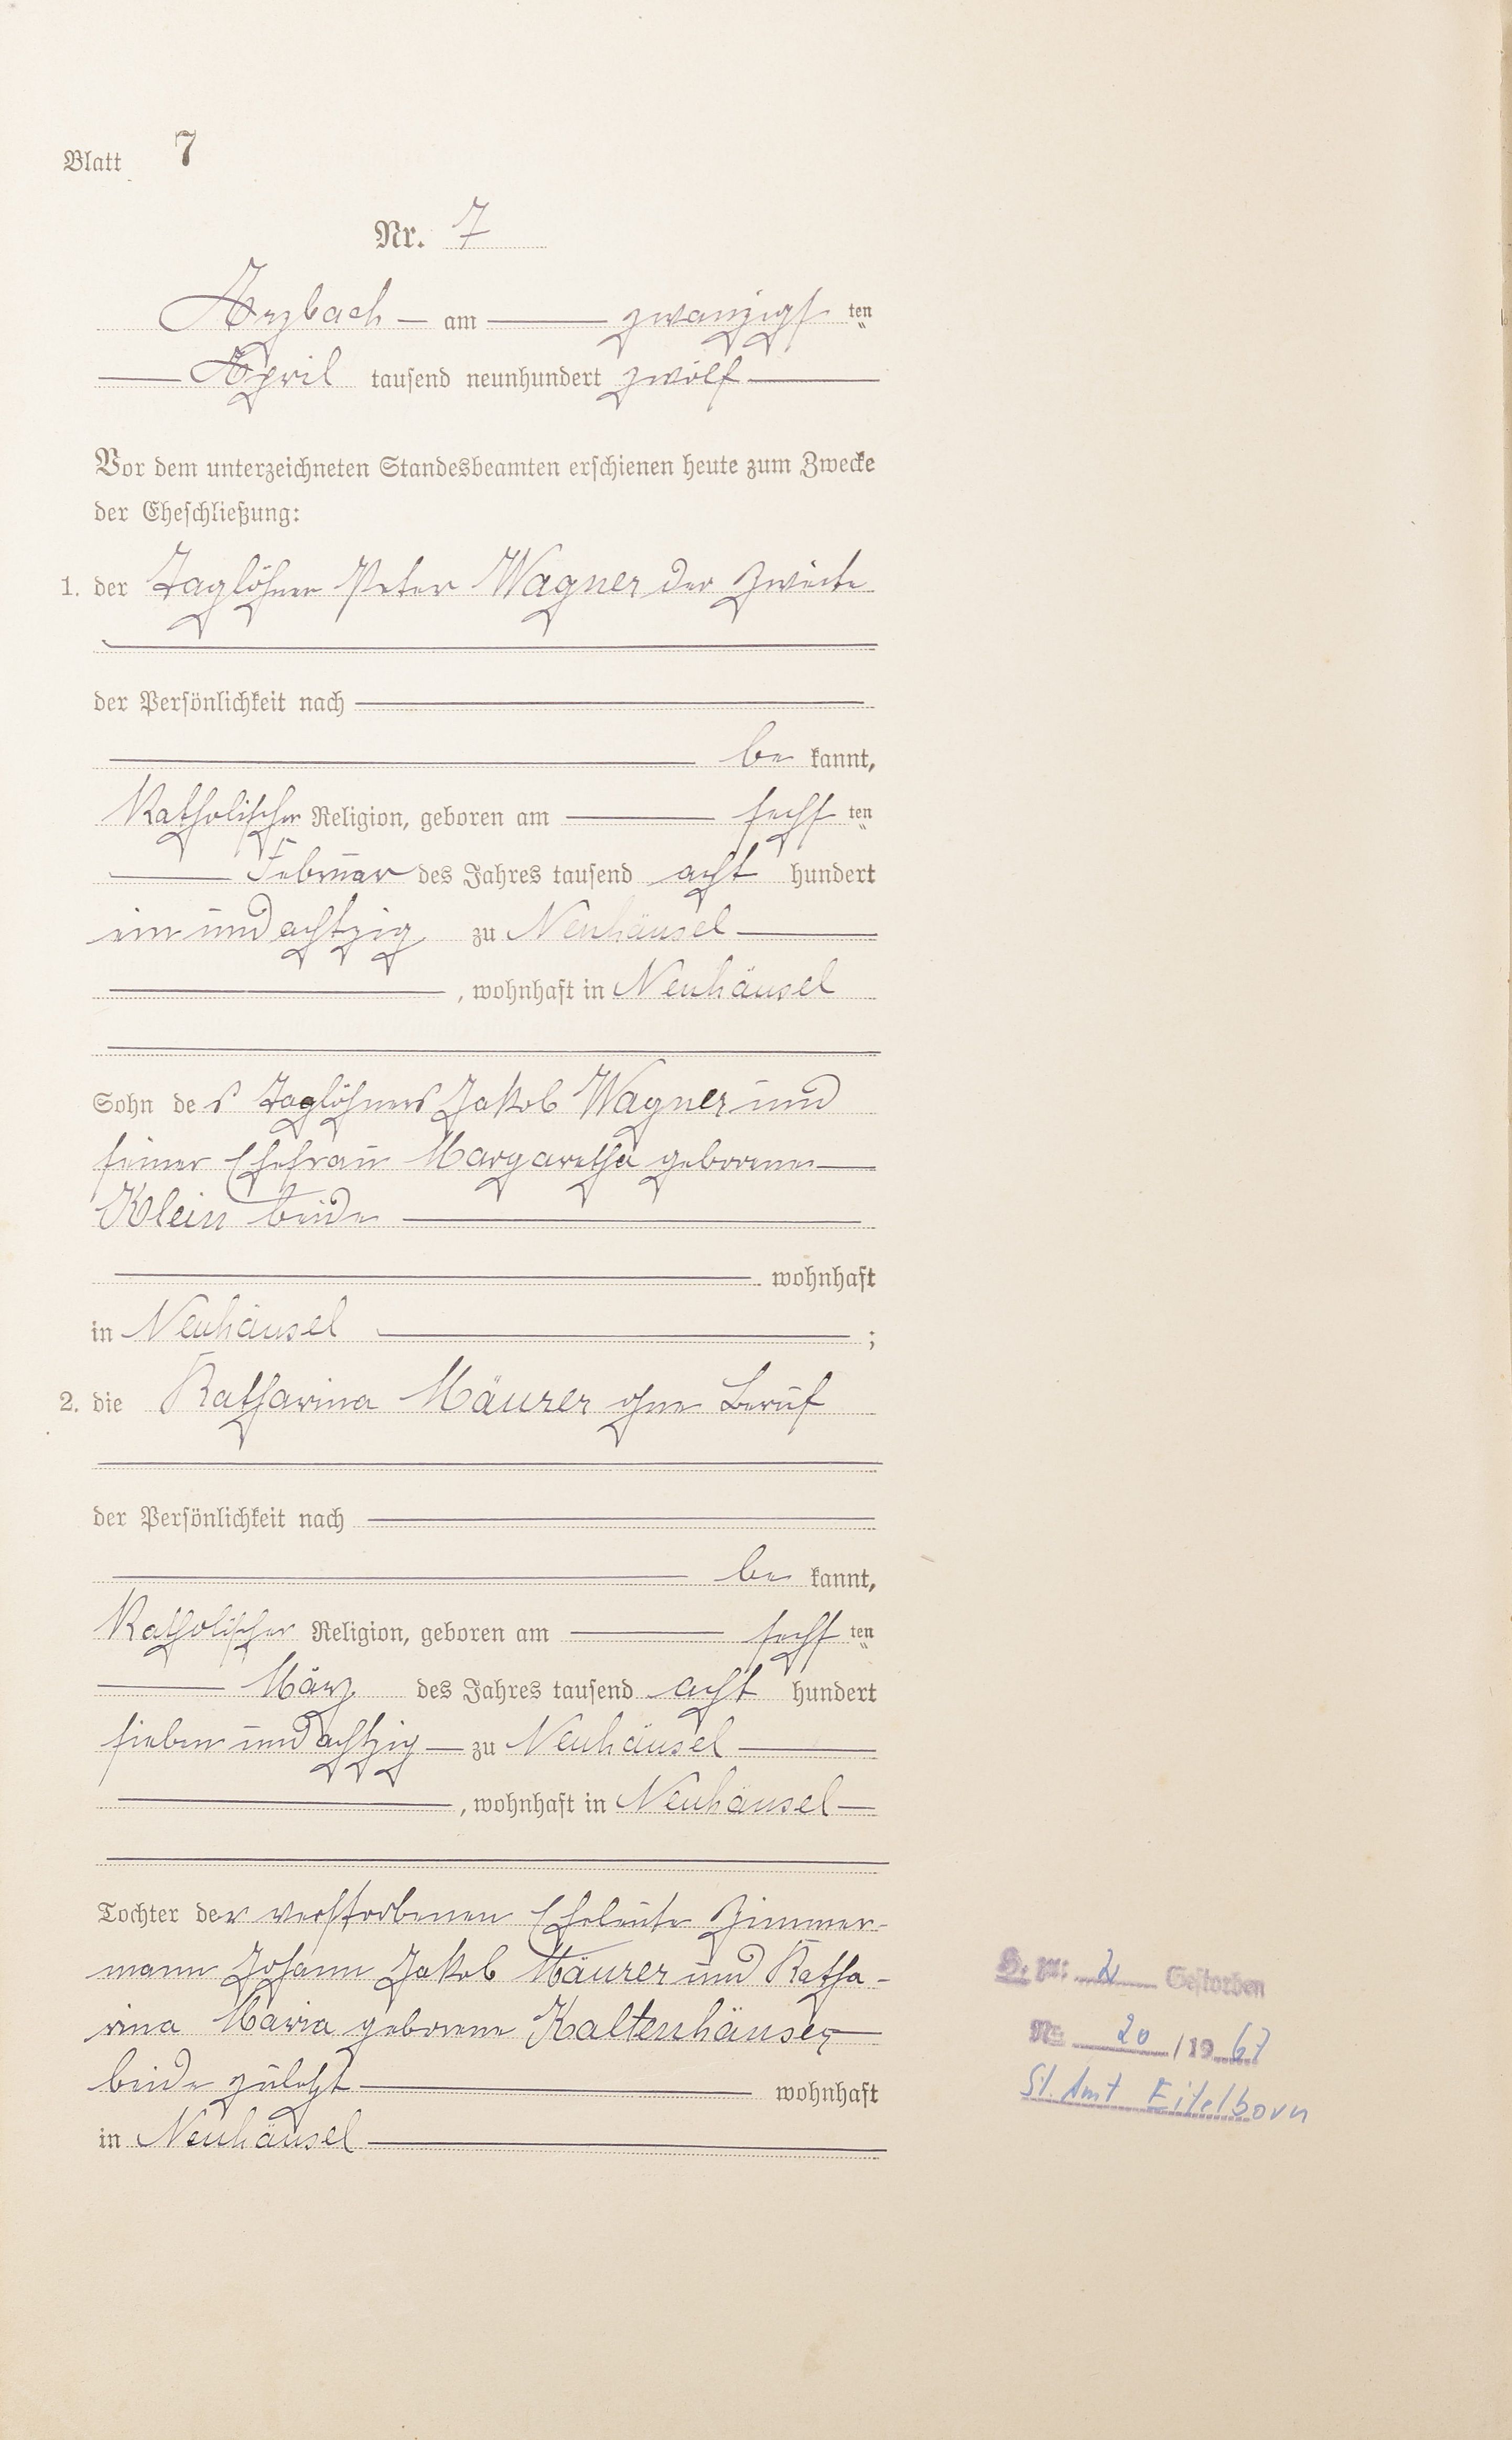 Blatt 7
Nr. 7
Arzbach am zwanzigsten
April tausend neunhundert zwölf
Vor dem unterzeichneten Standesbeamten erschienen heute zum Zwecke
der Eheschließung:
1. der Taglöhner Peter Wagner der Zweite
der Persönlichkeit nach
be kannt,
Katholischer Religion, geboren am sechsten
Februar des Jahres tausend acht hundert
ein und achtzig zu Neuhäusel
, wohnhaft in Neuhäusel
Sohn des Taglöhners Jakob Wagner und
seiner Ehefrau Margaretha geborene
Klein beide
wohnhaft
in Neuhäusel ;
2. die Katharina Mäurer ohne Beruf
der Persönlichkeit nach
be kannt,
Katholischer Religion, geboren am sechsten
März des Jahres tausend acht hundert
sieben und achtzig zu Neuhäusel
, wohnhaft in Neuhäusel
Tochter der verstorbenen Eheleute Zimmer-
mann Johann Jakob Mäurer und Katha-
rina Maria geborene Kaltenhäuser
beide zuletzt wohnhaft
in Neuhäusel
2 Gestorben
Nr. 20 /1967
St. Amt Eitelborn